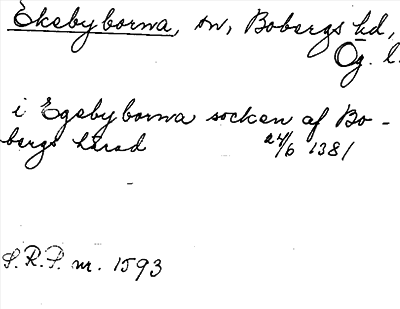 Ekebyborna, sn, Bobergs hd,
Ög. l.
i Egebyborna socken af Bo-
bergs hærad 24/6 1381
S.R.P. nr. 1593